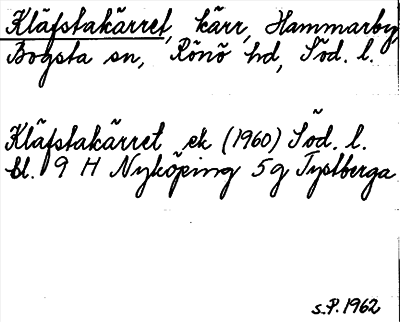 Kläfstakärret, kärr, Hammarby,
Bogsta sn, Rönö hd, Söd. l.
Kläfstakärret ek (1960) Söd. l.
bl. 9 H Nyköping 5g Tystberga
S.P. 1962